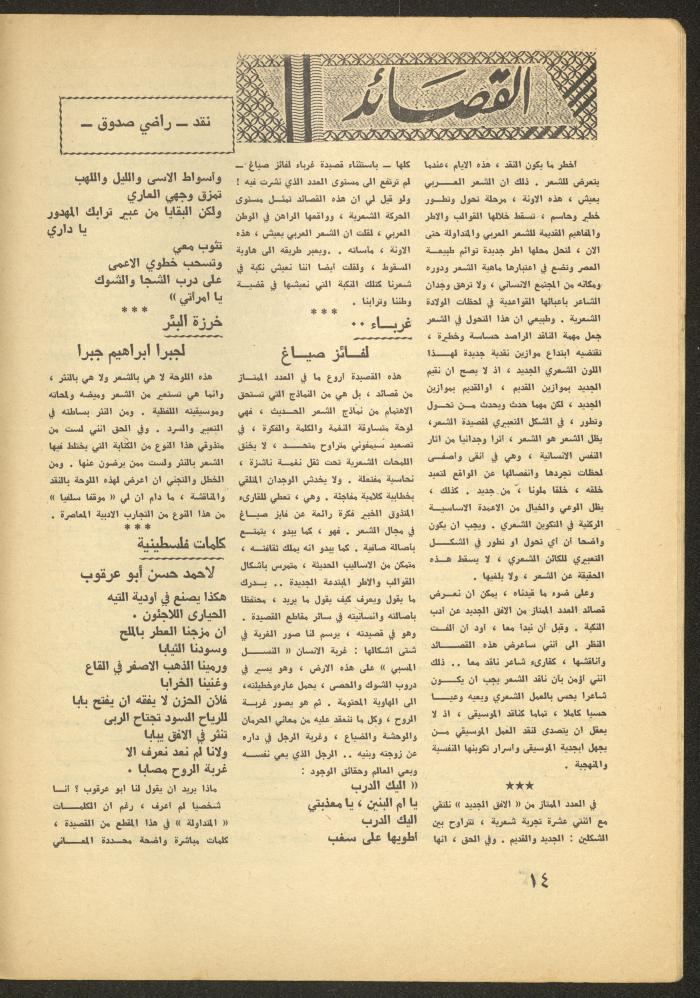 القصائد
نقد ــ راضي صدوق ــ
أخطر ما يكون النقد ، هذه الايام ، عندما
يتعرض للشعر . ذلك ان الشعر العــربي
يعيش ، هذه الاونة ، مرحلة تحول وتطــور
خطير وحاسم ، تسقط خلالها القوالب والاطر
والمفاهيم القديمة للشعر العربي والمتداولة حتى
الان ، لتحل محلها اطر جديدة توائم طبيعــة
العصر وتضع في اعتبارها ماهية الشعر ودوره
ومكانه من المجتمع الانساني ، ولا ترهق وجدان
الشاعر بأعبائها القواعدية في لحظات الولادة
الشعرية . وطبيعي ان هذا التحول في الشعر
جعل مهمة الناقد الراصد حساسة وخطيرة ،
تقتضيه ابتداع موازين نقدية جديدة لهــذا
اللون الشعري الجديد ، اذ لا يصح ان نقيم
الجديد بموازين القديم ، او القديم بموازين
الجديد ، لكن مهما حدث ويحدث مــن تحــول
وتطور ، في الشكل التعبيري لقصيدة الشعر،
يظل الشعر هو الشعر ، اثرا وجدانيا من اثار
النفس الانسانية ، وهي في انقى وأصفــى
لحظات تجردها وانفصالها عن الواقع لتعيد
خلقه ، خلقا ملونا ، من جديد . كذلك ،
يظل الوعي والخيال من الاعمدة الاساسيــة
الركنية في التكوين الشعري . ويجب ان يكون
واضحا أن أي تحول او تطور في الشكــل
التعبيري للكائن الشعري ، لا يسقط هــذه
الحقيقة عن الشعر ، ولا يلغيها .
وعلى ضوء ما قيدناه ، يمكن ان نعــرض
قصائد العدد الممتاز من الافق الجديد عن أدب
النكبة . وقبل أن نبدأ معا ، أود ان ألفــت
النظر الى انني سأعرض هذه القصــائد
وأناقشها ، كقارىء شاعر ناقد معا .. ذلك
انني أؤمن بأن ناقد الشعر يجب ان يكــون
شاعرا يحس بالعمل الشعري ويعيه وعيــا
حسيا كاملا ، تماما كناقد الموسيقى ، اذ لا
يعقل ان يتصدى لنقد العمل الموسيقي مــن
يجهل أبجدية الموسيقى وأسرار تكوينها النفسية
والمنهجية .
***
في العدد الممتاز من « الافق الجديد » نلتقي
مع اثنتي عشرة تجربة شعرية ، تتراوح بين
الشكلين : الجديد والقديم . وفي الحق ، انها
كلها ــ باستثناء قصيدة غرباء لفائز صياغ ــ
لم ترتفع الى مستوى العدد الذي نشرت فيه !
ولو قيل لي ان هذه القصائد تمثــل مستوى
الحركة الشعرية ، وواقعها الراهن في الوطن
العربي ، لقلت ان الشعر العربي يعيش ، هذه
الاونة ، مأساته .. ويعبر طريقه الى هاوية
السقوط ، ولقلت أيضا اننا نعيش نكبة في
شعرنا كتلك النكبة التي نعيشها في قضيــة
وطننا وترابنا .
***
غربــاء ..
لفــائز صيــاغ
هذه القصيدة اروع ما في العدد الممتــاز
من قصائد ، بل هي من النماذج التي تستحق
الاهتمام من نماذج الشعر الحــديث ، فهي
لوحة متساوقة النغمة والكلمة والفكرة ، في
تصعيد سيمفوني متراوح متحــد ، لا يخنق
اللمحات الشعرية تحت ثقل نغمــة ناشزة ،
نحاسية مفتعلة . ولا يخدش الوجدان المتلقي
بخطابية كلامية مفاجئة . وهي ، تعطي للقارىء
المتذوق الخير فكرة رائعة عن فايز صيــاغ
في مجال الشعر . فهو ، كما يبدو ، يتمتــع
بأصالة صافية . كما يبدو انه يملك ثقافتــه ،
متمكن من الاساليب الحديثة ، متمرس بأشكال
القوالب والاطر المبتدعة الجديدة .. يــدرك
ما يقول ويعرف كيف يقول ما يريد ، محتفظا
بأصالته وانسانيته في سائر مقاطع القصيدة .
وهو في قصيدته ، يرسم لنا صور الغربة في
شتى أشكالها : غربة الانسان « النســل
المسبي » على هذه الارض ، وهو يسير في
دروب الشوك والحصى ، يحمل عاره وخطيئته،
الى الهاوية المحتومة . ثم هو يصور غربــة
الروح ، وكل ما تنعقد عليه من معاني الحرمان
والوحشة والضياع ، وغربة الرجل في داره
عن زوجته وبنيه .. الرجل الذي يعي نفســه
ويعي العالم وحقائق الوجود :
« اليك الدرب
يا ام البنين ، يا معذبتي
اليك الدرب
أطويها على سغب
وأسواط الاسى والليل واللهب
تمزق وجهي العاري
ولكن البقايا من عبير ترابك المهدور
يا داري
تثوب معي
وتسحب خطوي الاعمى
على درب الشجا والشوك
يا امرأتي »
***
خرزة البئر
لجبرا ابراهيم جبرا
هذه اللوحة لا هي بالشعر ولا هي بالنثر ،
وانما هي تستعير من الشعر وميضه ولمحاته
وموسيقيته اللفظية . ومن النثر بساطته في
التعبير والسرد . وفي الحق انني لست من
متذوقي هذا النوع من الكتابة التي يختلط فيها
الشعر بالنثر ولست ممن يرضون عنها . ومن
الخطل والتجني ان اعرض لهذه اللوحة بالنقد
والمناقشة ، ما دام ان لي « موقفا سلفيا »
من هذا النوع من التجارب الادبية المعاصرة .
***
كلمات فلسطينية
لاحمد حسن أبو عرقوب
هكذا يصنع في أودية التيه
الحيارى اللاجئون .
ان مزجنا العطر بالملح
وسودنا الثيابا
ورمينا الذهب الاصفر في القاع
وغنينا الخرابا
فلأن الحزن لا يفقه ان يفتح بابا
للرياح السود تجتاح الربى
تنثر في الافق يبابا
ولانا لم نعد نعرف الا
غربة الروح مصابا .
ماذا يريد ان يقول لنا أبو عرقوب ؟ أنــا
شخصيا لم اعرف ، رغم ان الكلمــات
« المتداولة » في هذا المقطع من القصيدة ،
كلمات مباشرة واضحة محددة المعــاني
١٤